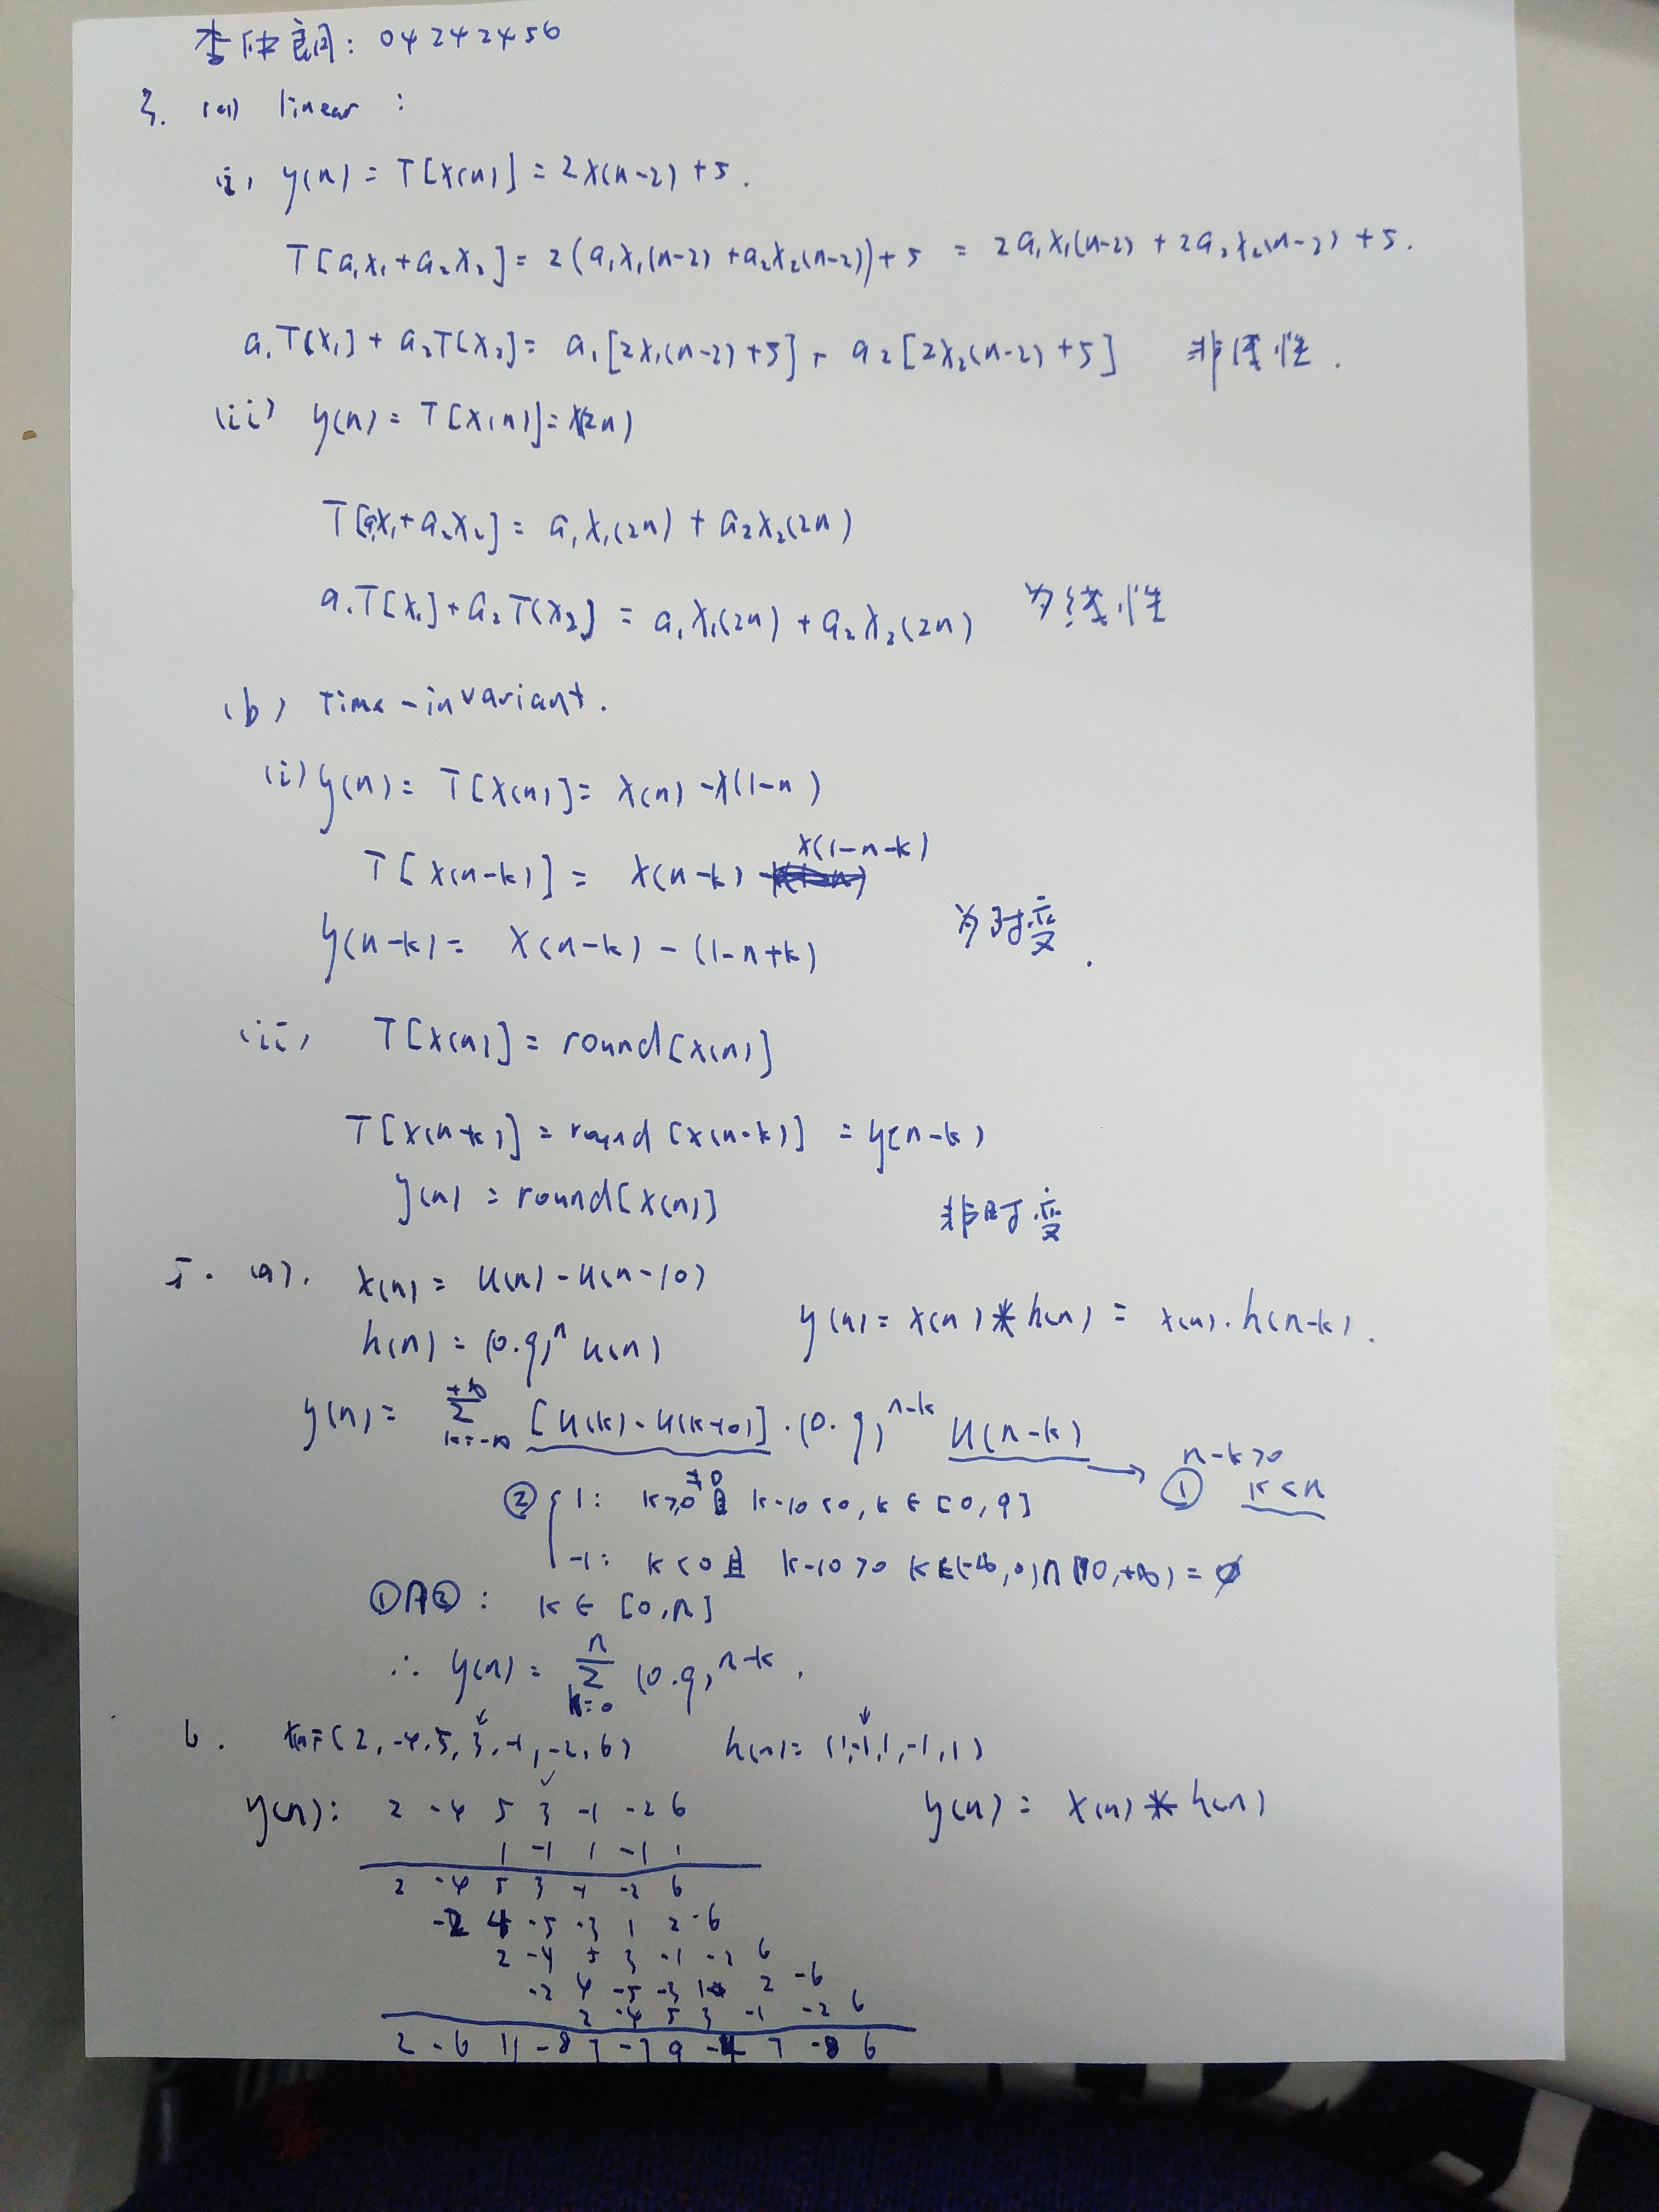 李仲良: 04242456
3. (a) linear :
(i) y(n) = T[x(n)] = 2x(n-2) +5.
T[a₁x₁+a₂x₂] = 2(a₁x₁(n-2) +a₂x₂(n-2))+5 = 2a₁x₁(n-2) + 2a₂x₂(n-2) +5.
a₁T[x₁] + a₂T[x₂] = a₁[2x₁(n-2)+5] + a₂[2x₂(n-2)+5] 非线性.
(ii) y(n) = T[x(n)] = x(2n)
T[a₁x₁+a₂x₂] = a₁x₁(2n) + a₂x₂(2n)
a₁T[x₁] + a₂T[x₂] = a₁x₁(2n) + a₂x₂(2n) 为线性
(b) Time-invariant.
(i) y(n) = T[x(n)] = x(n) -x(1-n)
T[x(n-k)] = x(n-k) - x(1-n-k)
y(n-k) = x(n-k) - (1-n+k) 为时变.
(ii) T[x(n)] = round[x(n)]
T[x(n-k)] = round[x(n-k)] = y(n-k)
y(n) = round[x(n)] 非时变
5. (a). x(n) = u(n) - u(n-10)
y(n) = x(n) * h(n) = x(n)·h(n-k).
h(n) = (0.9)ⁿ u(n)
y(n) = Σ k=-∞ +∞ [u(k) - u(k-10)]·(0.9)ⁿ⁻ᵏ u(n-k) → n-k>0
① k<n
② { 1: k≥0 且 k-10<0, k∈[0,9]
-1: k<0 且 k-10>0 k∈(-∞,0)∩(10,+∞) = ∅
①∩②: k∈[0,n]
∴ y(n) = Σ k=0 n (0.9)ⁿ⁻ᵏ.
6. x(n)=(2, -4, 5, 3, -1, -2, 6) h(n) = (1,-1,1,-1,1)
y(n): 2 -4 5 3 -1 -2 6 y(n) = x(n) * h(n)
1 -1 1 -1 1
2 -4 5 3 -1 -2 6
-2 4 -5 -3 1 2 -6
2 -4 5 3 -1 -2 6
-2 4 -5 -3 1 2 -6
2 -4 5 3 -1 -2 6
2 -6 11 -8 7 -7 9 -4 7 -8 6